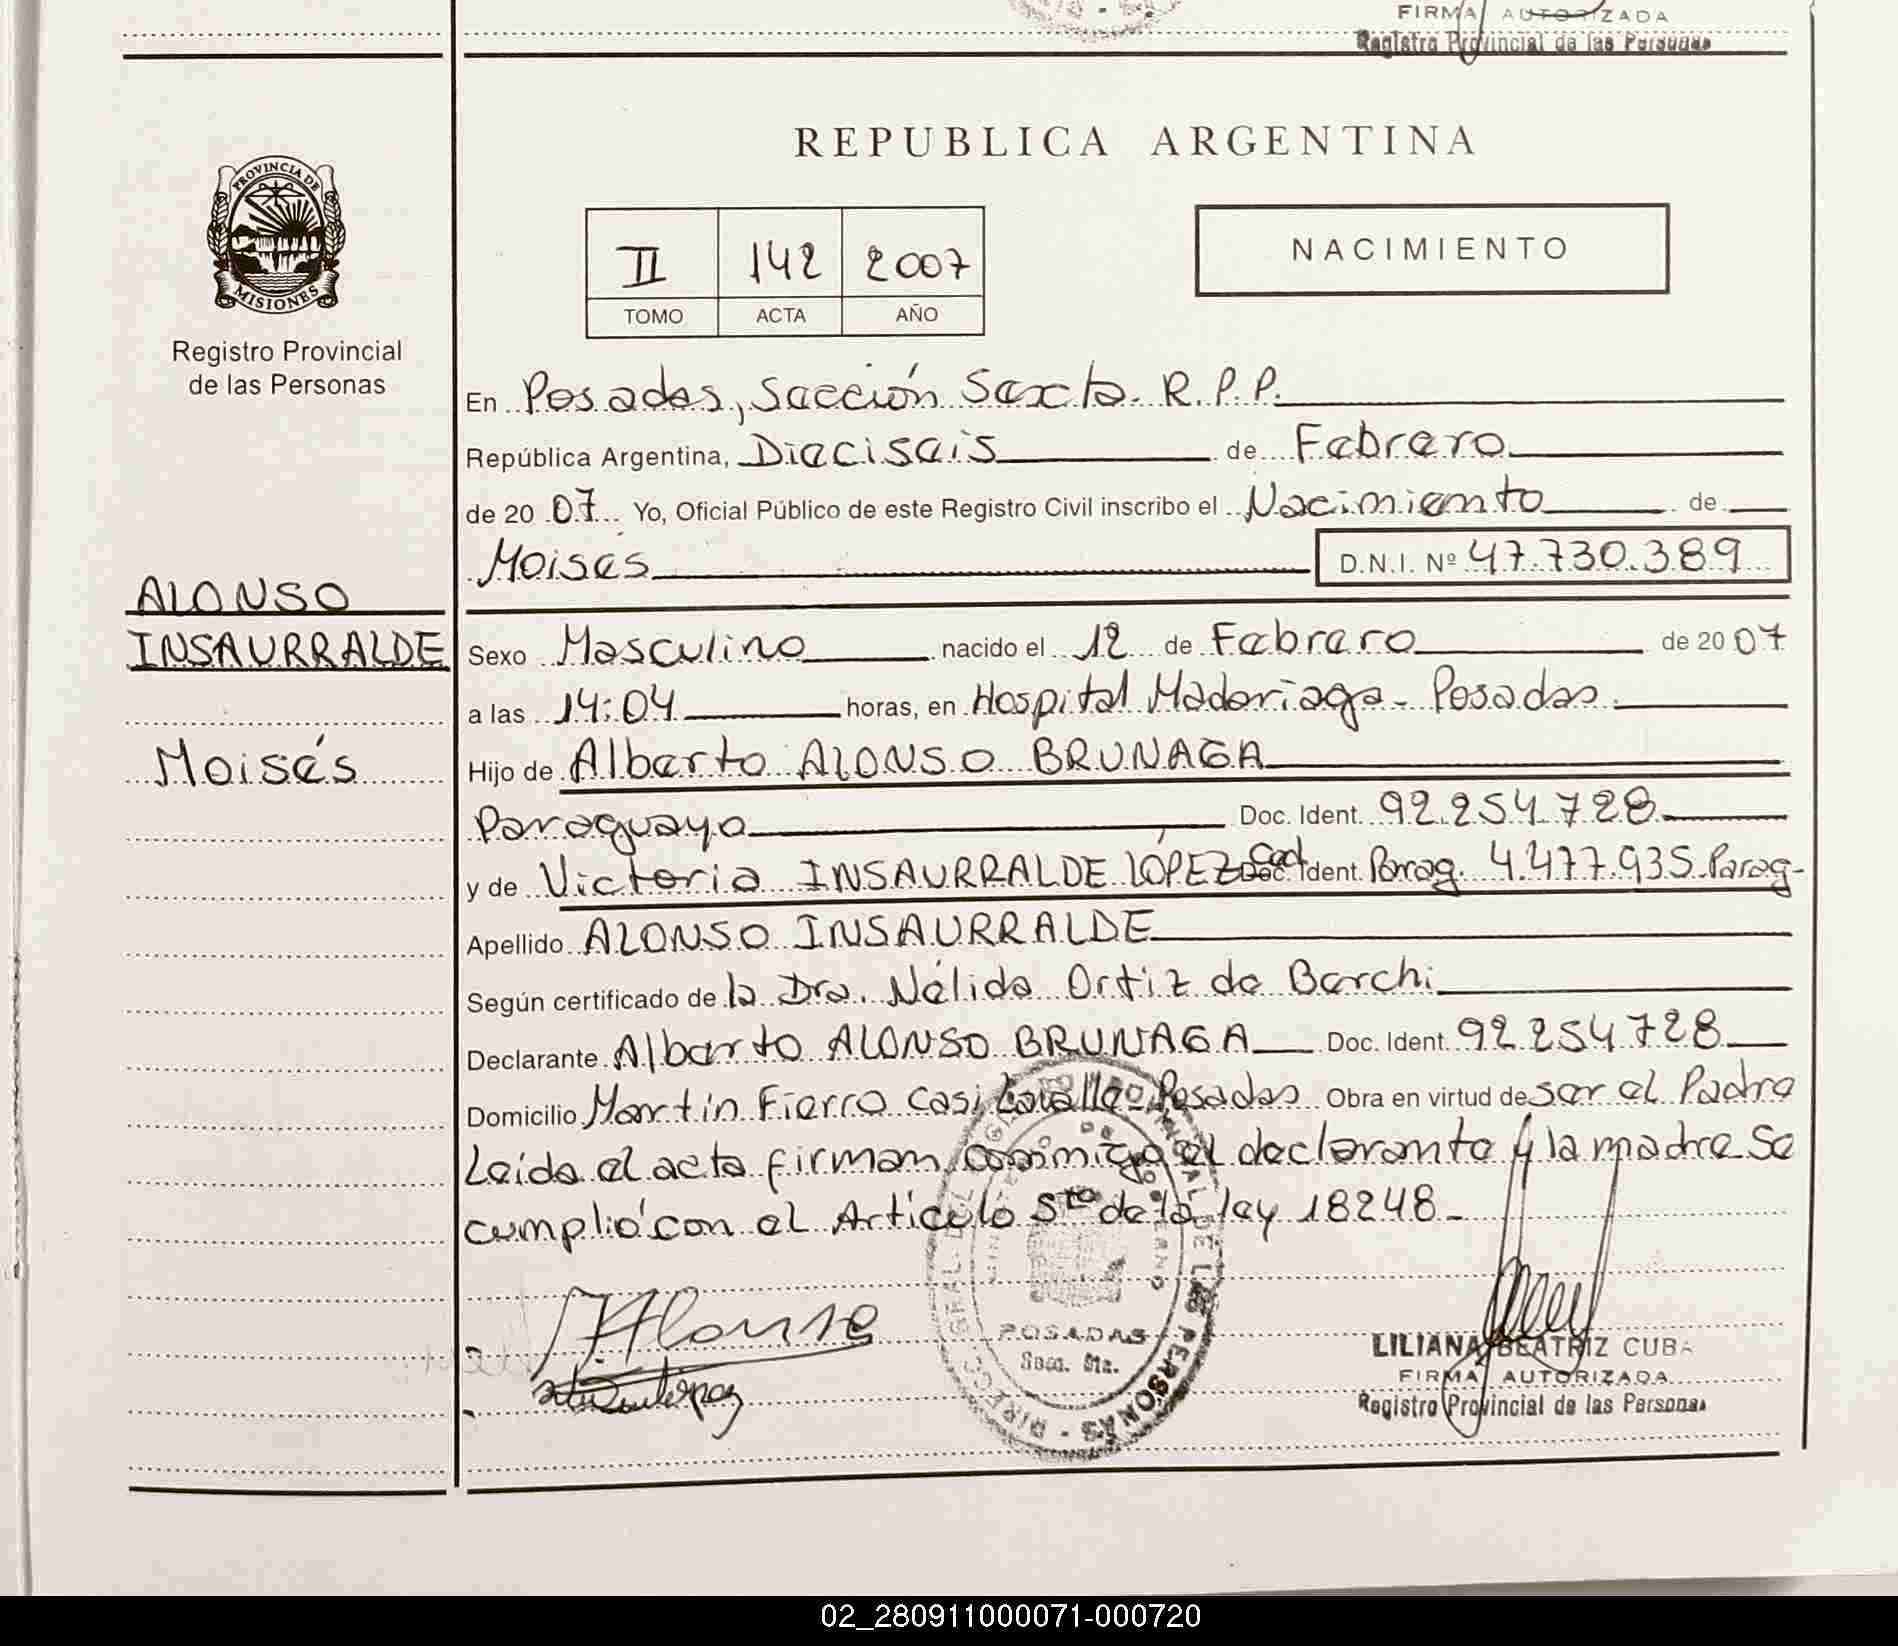 FIRMA AUTORIZADA
Registro Provincial de las Personas
REPUBLICA ARGENTINA
PROVINCIA DE
MISIONES
Registro Provincial
de las Personas
II 142 2007
TOMO ACTA AÑO
NACIMIENTO
En Posadas, Sección Sexta. R.P.P.
República Argentina, Dieciseis de Febrero
de 2007 Yo, Oficial Público de este Registro Civil inscribo el Nacimiento de
Moisés D.N.I. Nº 47.730.389
ALONSO
INSAURRALDE
Moisés
Sexo Masculino nacido el 12 de Febrero de 2007
a las 14:04 horas, en Hospital Madariaga - Posadas.
Hijo de Alberto ALONSO BRUNAGA
Paraguayo Doc. Ident. 92.254.728
y de Victoria INSAURRALDE LÓPEZ Ced. Ident. Parag. 4.477.935 Parag-
Apellido ALONSO INSAURRALDE
Según certificado de la Dra. Nélida Ortiz de Barchi
Declarante Alberto ALONSO BRUNAGA Doc. Ident. 92.254.728
Domicilio Martín Fierro casi Lavalle - Posadas Obra en virtud de ser el Padre
Leída el acta firman conmigo el declarante y la madre se
cumplió con el Artículo 5to de la ley 18248 -
POSADAS
Secc. 6ta.
LILIANA BEATRIZ CUBA
FIRMA AUTORIZADA
Registro Provincial de las Personas
02_280911000071-000720